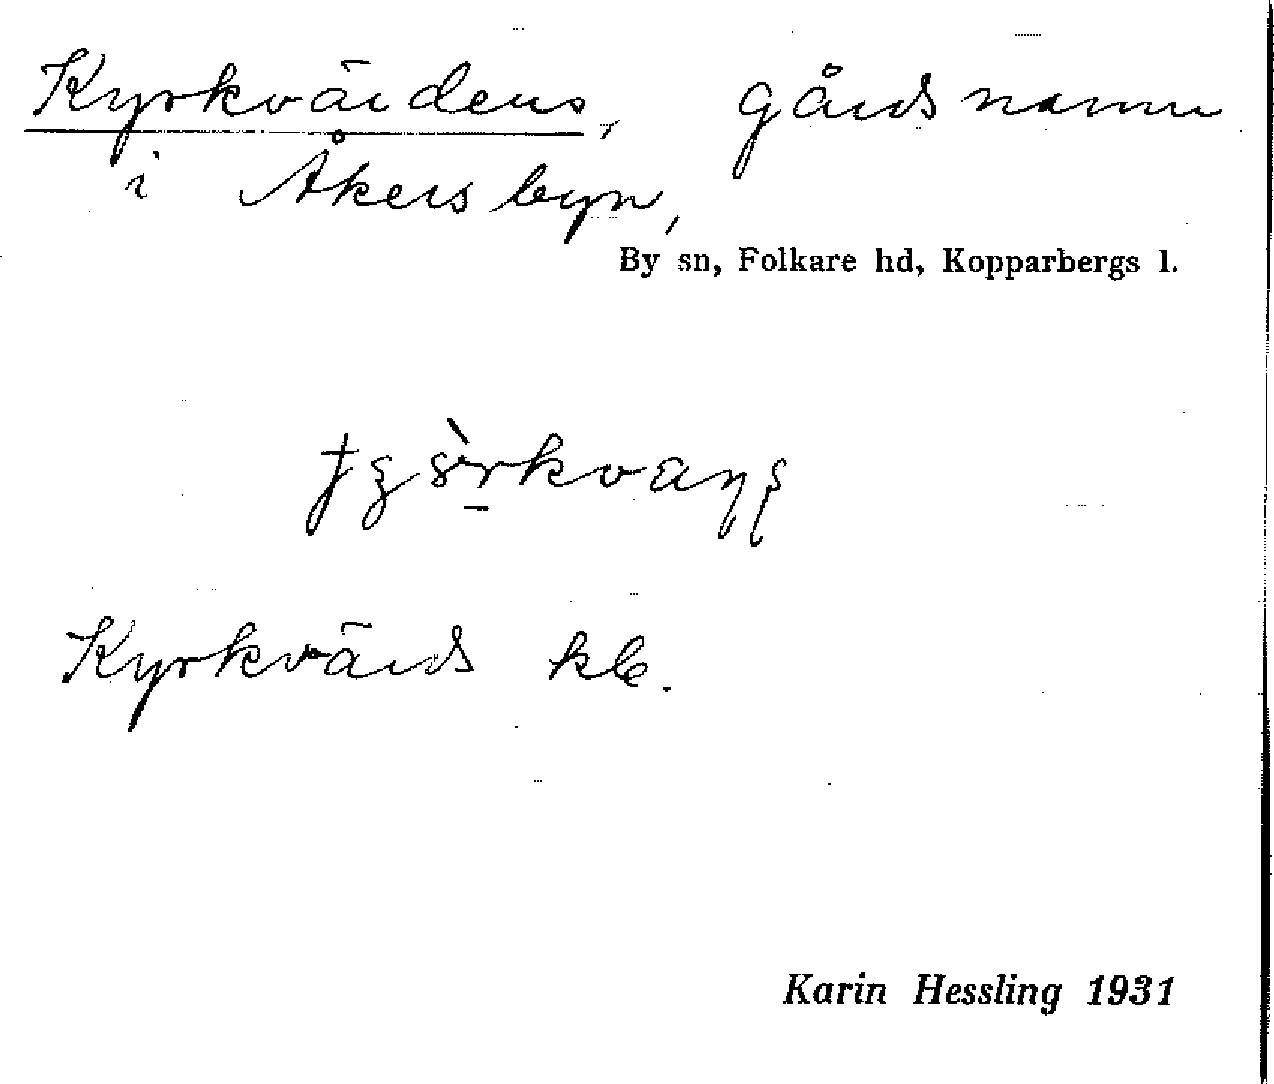 Kyrkvärdens, gårdsnamn
i Åkersbyn,
By sn, Folkare hd, Kopparbergs l.
Kyrkvärds kb.
Karin Hessling 1931